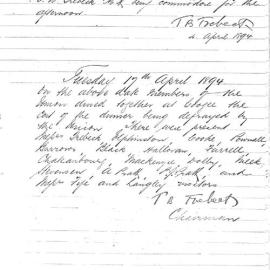 commodore for the
afternoon.
T B Trebeck
April 1894
Tuesday 17th April 1894.
On the above date members of the
Union dined together at Coogee the
cost of the dinner being defrayed by
the Union. There were present
Messrs Trebeck, Cooke, Pownall,
Burrows, Black, Halloran, Farrell,
Mackenzie, Dolly,
Stevenson, and
Messrs Fyfe and Langley visitors
T B Trebeck
Chairman